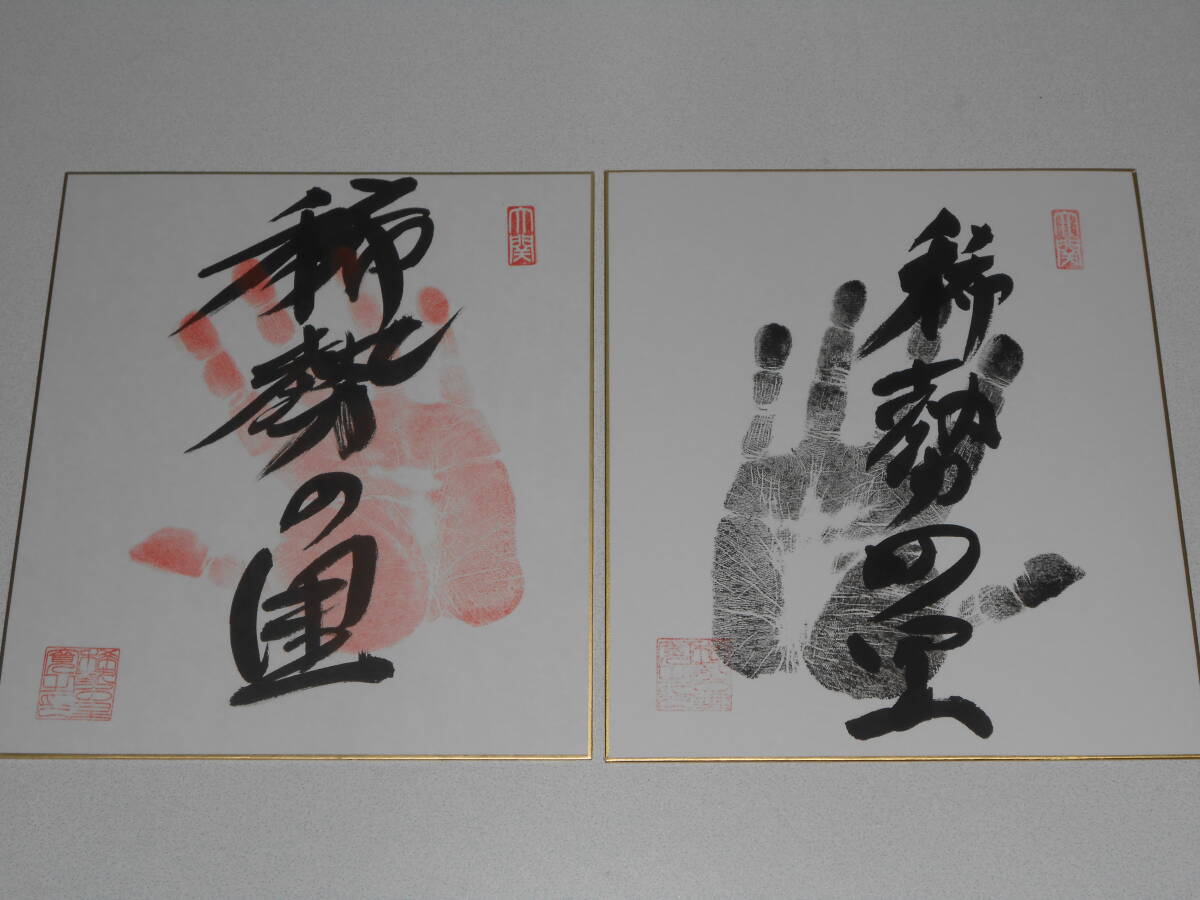 稀勢の里
大関
稀勢の里
大関